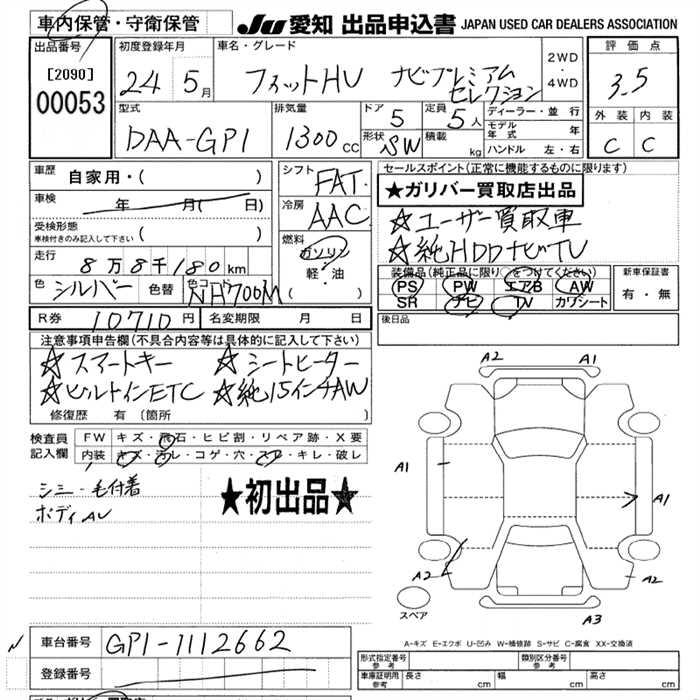 車内保管・守衛保管
JU 愛知 出品申込書 JAPAN USED CAR DEALERS ASSOCIATION
出品番号 初度登録年月 車名・グレード 2WD・4WD 評価点
[2090] 24 5月 フィットHV ナビプレミアム 3.5
00053 セレクション
型式 排気量 ドア 定員 ディーラー・並行 外装 内装
DAA-GP1 1300cc 5 5人 モデル年式 年 C C
形状 SW 積載 kg ハンドル 左・右
車歴 自家用・( ) シフト FAT セールスポイント(正常に機能するものに限ります)
車検 年 月( 日) 冷房 AAC ★ガリバー買取店出品
受検形態 ☆ユーザー買取車
車検付きのみ記入して下さい ( ) 燃料 ガソリン ☆純HDDナビTV
走行 8万8千180km 軽・油 装備品(純正品に限り○をつけてください) 新車保証書
色 シルバー 色替 色コード NH700M ( ) PS PW エアB AW 有・無
SR ナビ TV カワシート
R券 10710円 名変期限 月 日 後日品
注意事項申告欄(不具合内容等は具体的に記入して下さい)
☆スマートキー ☆シートヒーター
☆ビルトインETC ☆純15インチAW
修復歴 有 〔箇所 〕
検査員記入欄 FW キズ・飛石・ヒビ割・リペア跡・X要
内装 キズ・汚レ・コゲ・穴・スレ・キレ・破レ
シミ・毛付着
ボディAU
★初出品★
A2 A1
A1 A1
A2 A2
スペア A3
A-キズ E-エクボ U-凹み W-補修跡 S-サビ C-腐食 XX-交換済
車台番号 GP1-1112662
登録番号
形式指定番号 参考 類別区分番号 参考
車庫証明用 参考 長さ cm 幅 cm 高さ cm